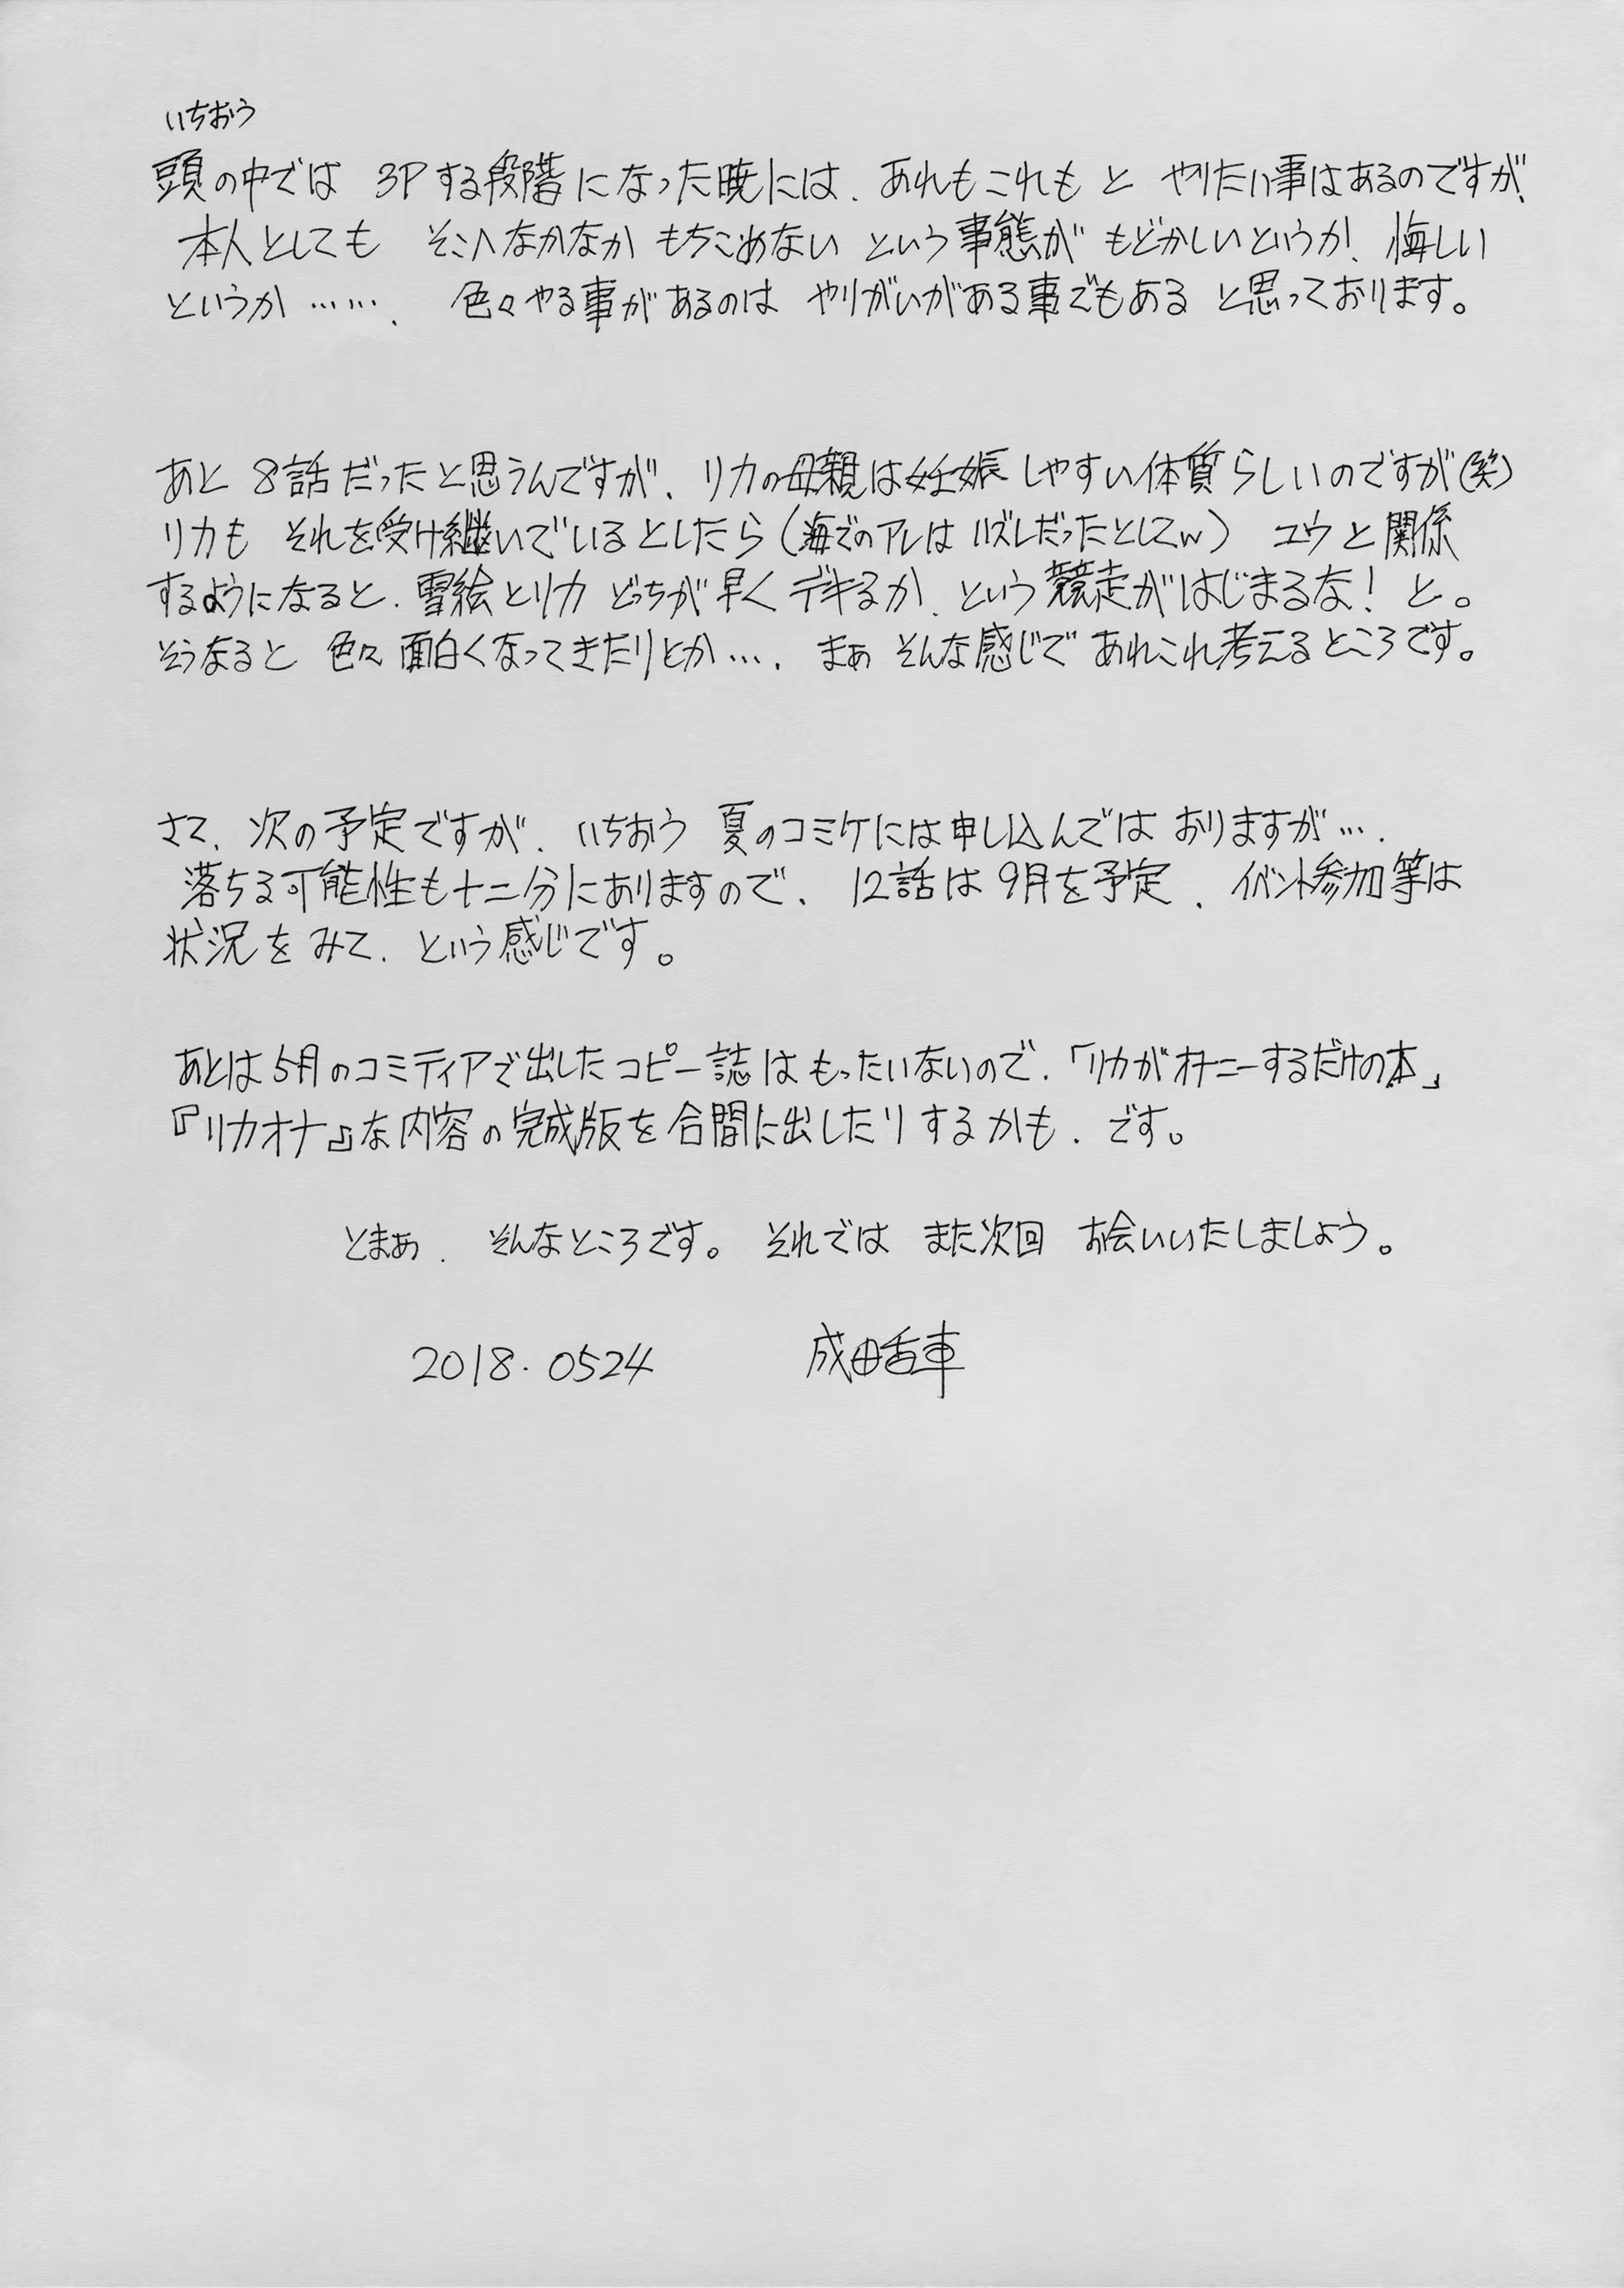 いちおう
頭の中では 3Pする段階になった暁には、あれもこれもと やりたい事はあるのですが、
本人としても そこへなかなか もちこめない という事態が もどかしいというか、悔しい
というか……、 色々やる事があるのは やりがいがある事でもある と思っております。
あと 8話だったと思うんですが、リカの母親は妊娠しやすい体質らしいのですが(笑)
リカも それを受け継いでいるとしたら(海でのアレは ハズレだったとしてw) ユウと関係
するようになると、雪絵とリカ どっちが早くデキるか、という競走がはじまるな! と。
そうなると 色々面白くなってきたりとか…、まぁ そんな感じで あれこれ考えるところです。
さて、次の予定ですが、いちおう 夏のコミケには申し込んでは おりますが…、
落ちる可能性も十二分にありますので、12話は9月を予定、イベント参加等は
状況をみて、という感じです。
あとは5月のコミティアで出したコピー誌は もったいないので、「リカがオナニーするだけの本」
『リカオナ』な内容の完成版を合間に出したりするかも、です。
とまぁ、そんなところです。それでは また次回 お会いいたしましょう。
2018.0524 成田香車